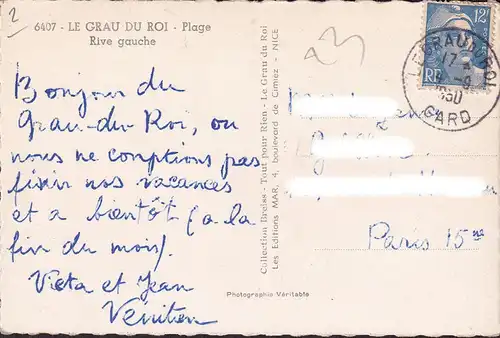 2
6407 - LE GRAU DU ROI - Plage
Rive gauche
Bonjour du
Grau-du-Roi, ou
nous ne comptions pas
finir nos vacances
et a bientôt (a la
fin du mois).
et Jean
Collection Breiss - Tout pour Rien - Le Grau du Roi
Les Editions MAR, 4, boulevard de Cimiez - NICE
Photographie Véritable
23
12F
RF
LE GRAU DU ROI
GARD
Paris 15me